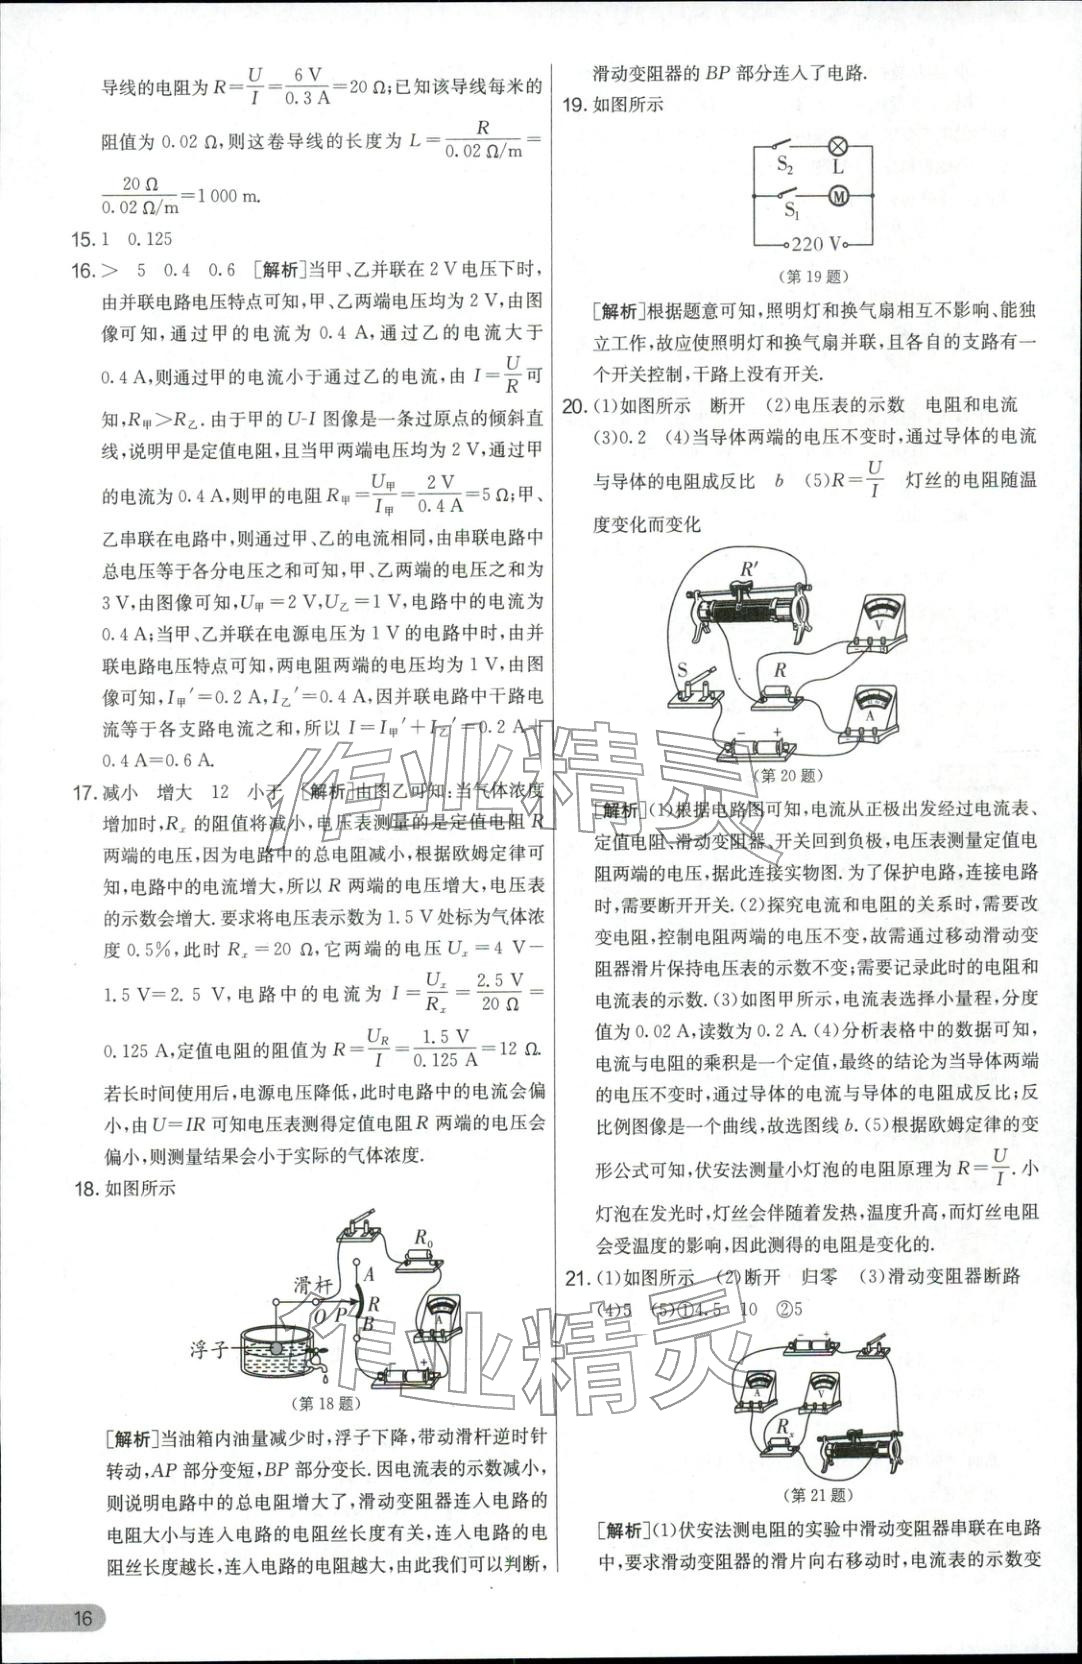 导线的电阻为 R=U/I=6 V/0.3 A=20 Ω;已知该导线每米的
阻值为 0.02 Ω,则这卷导线的长度为 L=R/0.02 Ω/m=
20 Ω/0.02 Ω/m=1 000 m.
15. 1 0.125
16. > 5 0.4 0.6 [解析]当甲、乙并联在 2 V 电压下时,
由并联电路电压特点可知,甲、乙两端电压均为 2 V,由图
像可知,通过甲的电流为 0.4 A,通过乙的电流大于
0.4 A,则通过甲的电流小于通过乙的电流,由 I=U/R 可
知,R甲>R乙.由于甲的 U-I 图像是一条过原点的倾斜直
线,说明甲是定值电阻,且当甲两端电压均为 2 V,通过甲
的电流为 0.4 A,则甲的电阻 R甲=U甲/I甲=2 V/0.4 A=5 Ω;甲、
乙串联在电路中,则通过甲、乙的电流相同,由串联电路中
总电压等于各分电压之和可知,甲、乙两端的电压之和为
3 V,由图像可知,U甲=2 V,U乙=1 V,电路中的电流为
0.4 A;当甲、乙并联在电源电压为 1 V 的电路中时,由并
联电路电压特点可知,两电阻两端的电压均为 1 V,由图
像可知,I甲′=0.2 A,I乙′=0.4 A,因并联电路中干路电
流等于各支路电流之和,所以 I=I甲′+I乙′=0.2 A+
0.4 A=0.6 A.
17. 减小 增大 12 小于 [解析]由图乙可知:当气体浓度
增加时,Rx 的阻值将减小,电压表测量的是定值电阻 R
两端的电压,因为电路中的总电阻减小,根据欧姆定律可
知,电路中的电流增大,所以 R 两端的电压增大,电压表
的示数会增大.要求将电压表示数为 1.5 V 处标为气体浓
度 0.5%,此时 Rx=20 Ω,它两端的电压 Ux=4 V−
1.5 V=2.5 V,电路中的电流为 I=Ux/Rx=2.5 V/20 Ω=
0.125 A,定值电阻的阻值为 R=UR/I=1.5 V/0.125 A=12 Ω.
若长时间使用后,电源电压降低,此时电路中的电流会偏
小,由 U=IR 可知电压表测得定值电阻 R 两端的电压会
偏小,则测量结果会小于实际的气体浓度.
18. 如图所示
R0
滑杆 A
O P R
B
A
浮子
− +
(第 18 题)
[解析]当油箱内油量减少时,浮子下降,带动滑杆逆时针
转动,AP 部分变短,BP 部分变长.因电流表的示数减小,
则说明电路中的总电阻增大了,滑动变阻器连入电路的
电阻大小与连入电路的电阻丝长度有关,连入电路的电
阻丝长度越长,连入电路的电阻越大,由此我们可以判断,
16
滑动变阻器的 BP 部分连入了电路.
19. 如图所示
S2 L
M
S1
220 V
(第 19 题)
[解析]根据题意可知,照明灯和换气扇相互不影响、能独
立工作,故应使照明灯和换气扇并联,且各自的支路有一
个开关控制,干路上没有开关.
20. (1)如图所示 断开 (2)电压表的示数 电阻和电流
(3)0.2 (4)当导体两端的电压不变时,通过导体的电流
与导体的电阻成反比 b (5)R=U/I 灯丝的电阻随温
度变化而变化
R′
V
S R
A
− +
(第 20 题)
[解析](1)根据电路图可知,电流从正极出发经过电流表、
定值电阻、滑动变阻器、开关回到负极,电压表测量定值电
阻两端的电压,据此连接实物图.为了保护电路,连接电路
时,需要断开开关.(2)探究电流和电阻的关系时,需要改
变电阻,控制电阻两端的电压不变,故需通过移动滑动变
阻器滑片保持电压表的示数不变;需要记录此时的电阻和
电流表的示数.(3)如图甲所示,电流表选择小量程,分度
值为 0.02 A,读数为 0.2 A.(4)分析表格中的数据可知,
电流与电阻的乘积是一个定值,最终的结论为当导体两端
的电压不变时,通过导体的电流与导体的电阻成反比;反
比例图像是一个曲线,故选图线 b.(5)根据欧姆定律的变
形公式可知,伏安法测量小灯泡的电阻原理为 R=U/I.小
灯泡在发光时,灯丝会伴随着发热,温度升高,而灯丝电阻
会受温度的影响,因此测得的电阻是变化的.
21. (1)如图所示 (2)断开 归零 (3)滑动变阻器断路
(4)5 (5)①4.5 10 ②5
− +
A V
Rx
(第 21 题)
[解析](1)伏安法测电阻的实验中滑动变阻器串联在电路
中,要求滑动变阻器的滑片向右移动时,电流表的示数变
作业精灵
作业精灵